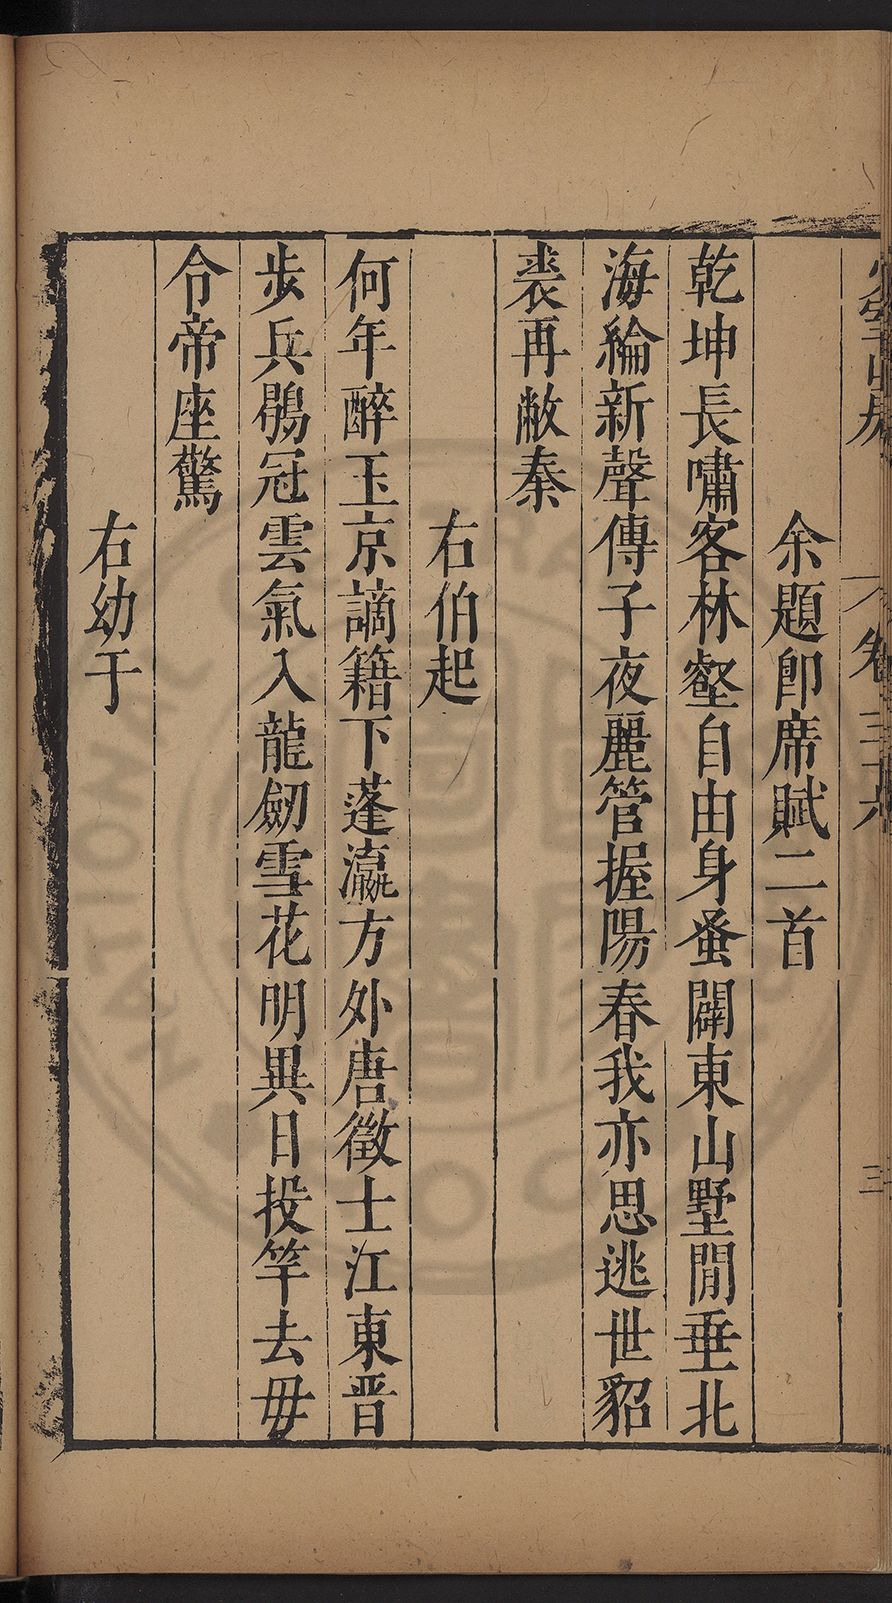 余題即席賦二首
乾坤長嘯客林壑自由身蚤闢東山墅閒垂北
海綸新聲傳子夜麗管握陽春我亦思逃世貂
裘再敝秦
右伯起
何年醉玉京謫籍下蓬瀛方外唐徵士江東晋
歩兵鶡冠雲氣入龍劒雪花明異日投竿去毋
令帝座驚
右幼于